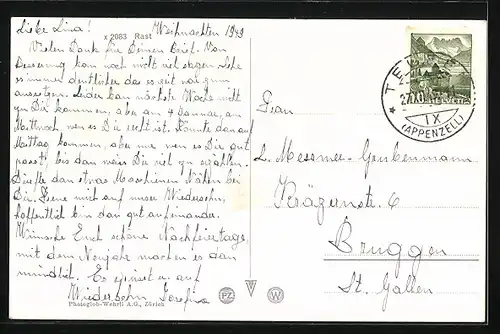 Liebe Lina! Weihnachten 1949
x 2083 Rast
Vielen Dank für Deinen Brief. Von
Besserung kann noch nicht viel sagen. Sehe
es immer deutlicher das es Zeit
Leider kan nächste Woche nicht
zu Dir kommen, aber am 4 Januar, am
Mittwoch, wen es Dir recht ist. Könnte dan auf
Mittag kommen, aber nur wen es Dir gut
passt, bis dan mein Dir viel zu erzählen.
Dürfte dan etwas Maschienen Nähen bei
Dir. Freue mich auf unser Wiedersehn,
hoffentlich bin dan gut aufeinander.
Wünsche Euch schöne Nachfeiertage,
mit dem Neujahr machen es dan
mündlich. Es grüsst u. auf
Wiedersehn Josefina
Photoglob-Wehrli A.G., Zürich
PZ W
TEUFEN
27.XII.
HELVETIA
IX
(APPENZELL)
Frau
L. Messmer-Grubenmann
Kräzernstr. 6
Bruggen
St. Gallen